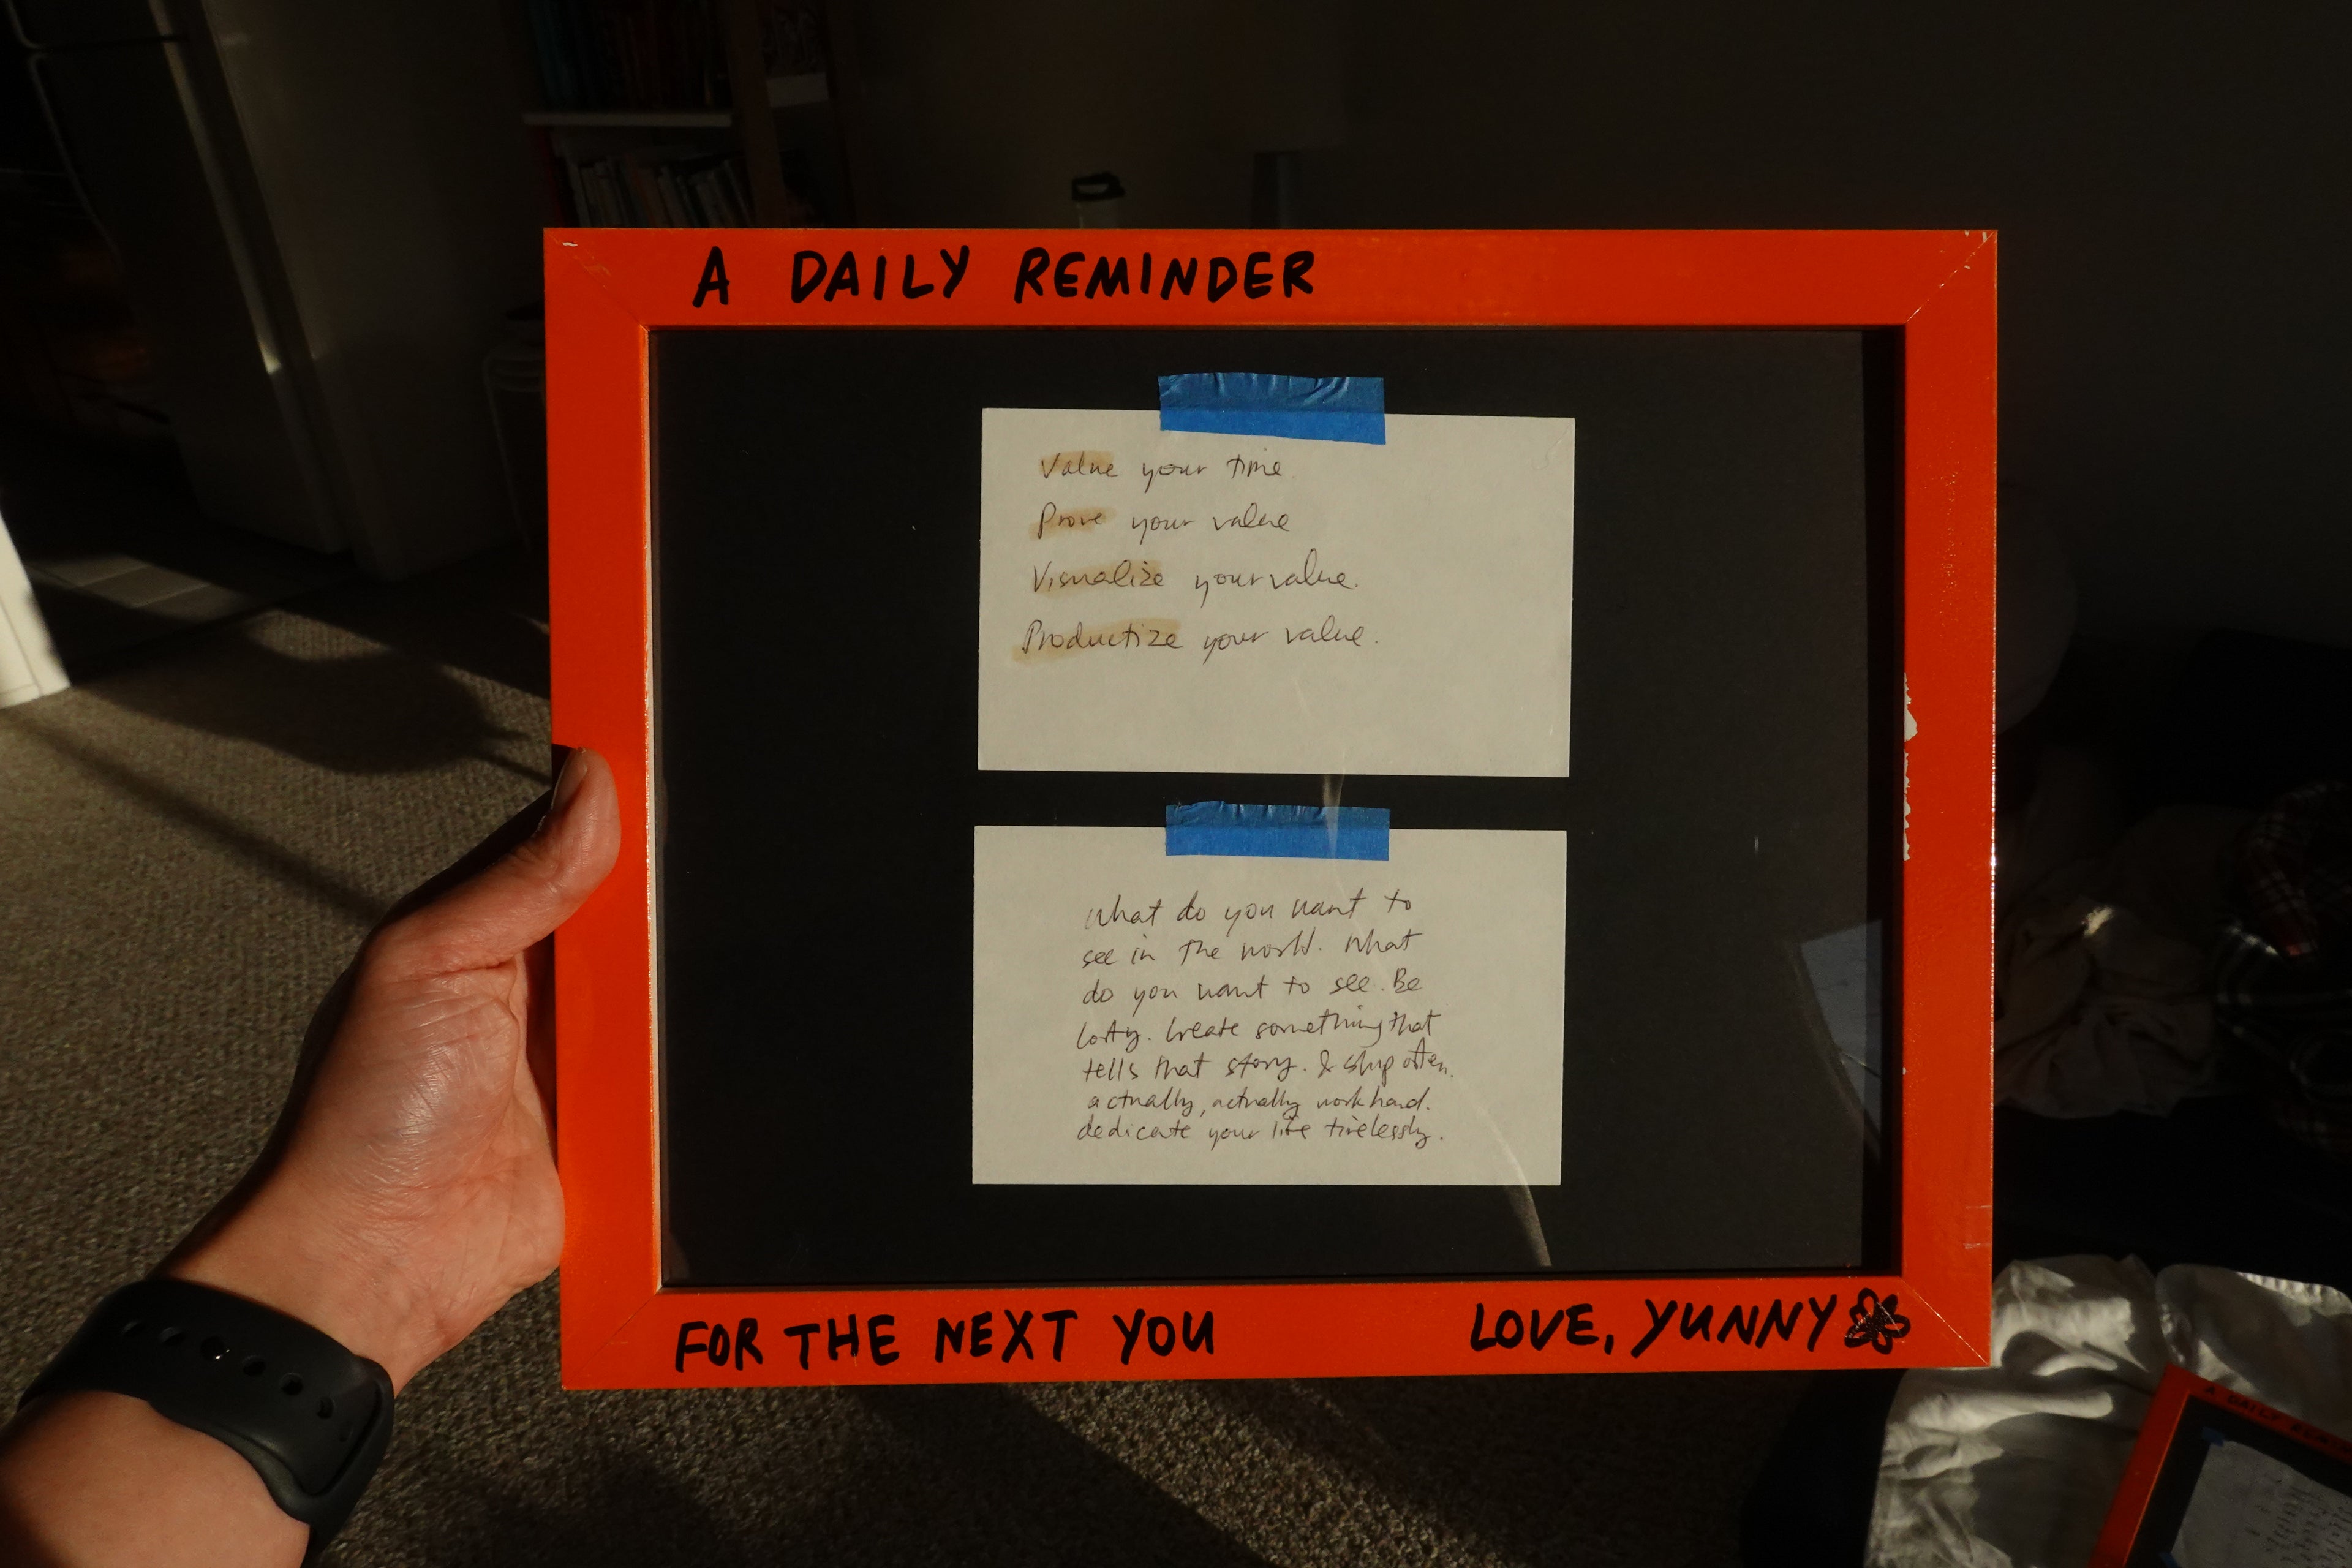 A DAILY REMINDER
Value your time.
Prove your value
Visualize your value.
Productize your value.
What do you want to
see in the world. What
do you want to see. Be
lofty. Create something that
tells that story. & ship often.
actually, actually work hard.
dedicate your life tirelessly.
FOR THE NEXT YOU
LOVE, YUNNY
A DAILY